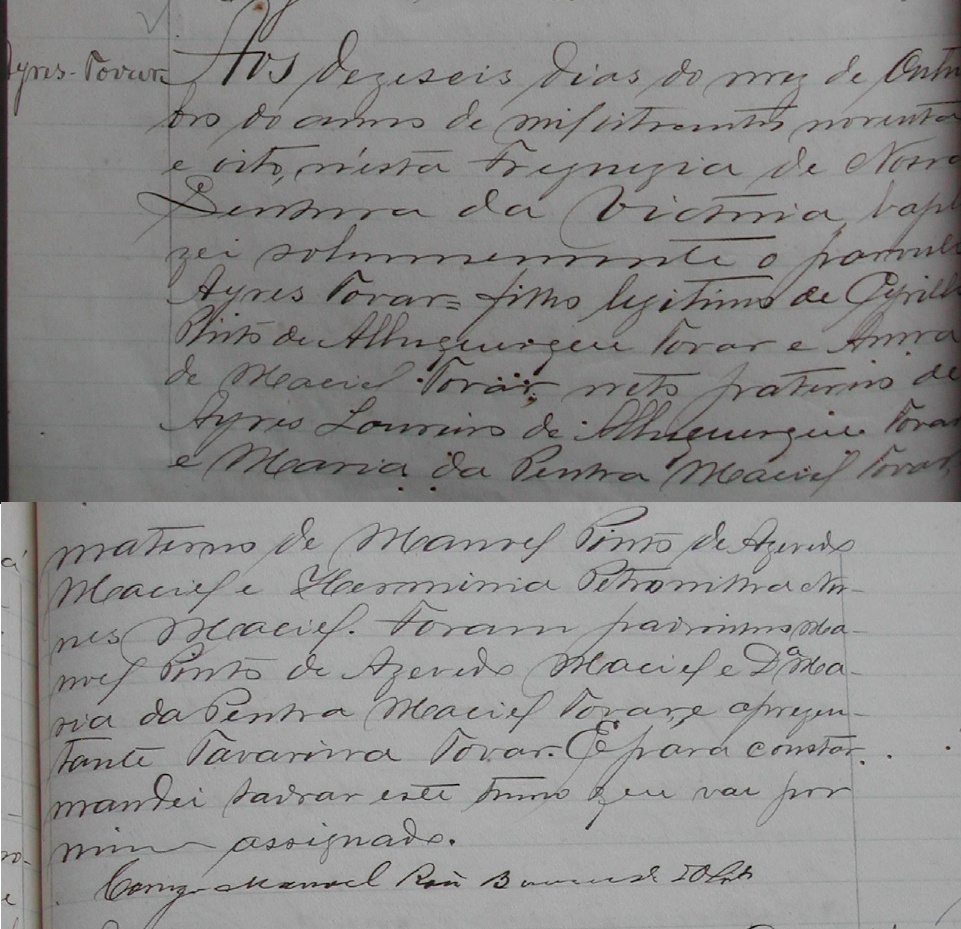 Ayres-Tovar
Aos dezeseis dias do mez de Outu
bro do anno de mil oitocentos noventa
e oito, n'esta Freguezia de Nossa
Senhora da Victoria, bapti
zei solemnemente o parvulo
Ayres Tovar= filho legitimo de Cyrillo
Pinto de Albuquerque Tovar e Anna
de Maciel Tovar, neto paterno de
Ayres Loureiro de Albuquerque Tovar
e Maria da Penha Maciel Tovar,
materno de Manoel Pinto de Azevedo
Maciel e Herminia Petronilha Nu-
nes Maciel. Foram padrinhos Ma-
noel Pinto de Azevedo Maciel e Dª Ma-
ria da Penha Maciel Tovar, e aprezen-
tante Tavarina Tovar. E para constar
mandei lavrar este termo que vai por
mim assignado.
Manoel